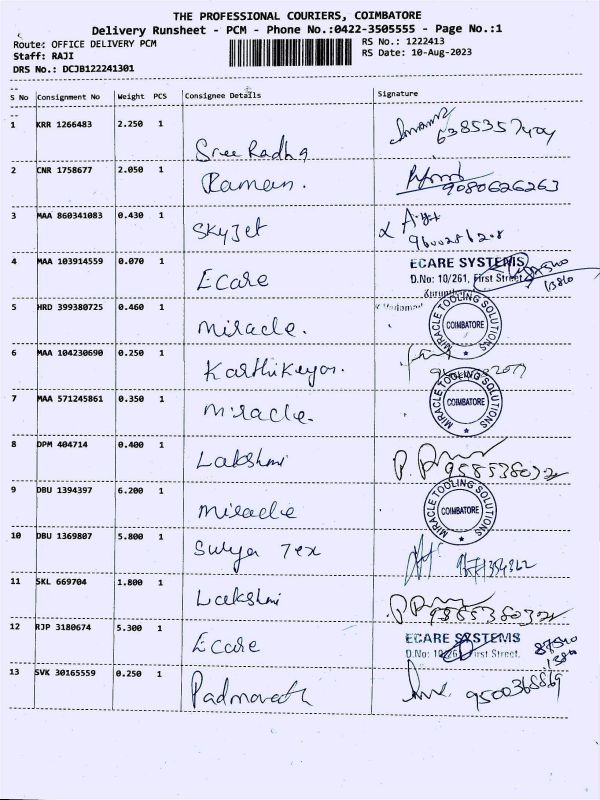 THE PROFESSIONAL COURIERS, COIMBATORE
Delivery Runsheet - PCM - Phone No.:0422-3505555 - Page No.:1
Route: OFFICE DELIVERY PCM RS No.: 1222413
Staff: RAJI RS Date: 10-Aug-2023
DRS No.: DCJB122241301
S No Consignment No Weight PCS Consignee Details Signature
1 KRR 1266483 2.250 1
Sree Radha
2 CNR 1758677 2.050 1
Raman. 9080626263
3 MAA 860341083 0.430 1
SkyJet
4 MAA 103914559 0.070 1 ECARE SYSTEMS
D.No: 10/261, First Street
Ecare
5 HRD 399380725 0.460 1
MIRACLE TOOLING SOLUTIONS
COIMBATORE
Miracle.
6 MAA 104230690 0.250 1
Karthikeyan.
7 MAA 571245861 0.350 1
MIRACLE TOOLING SOLUTIONS
COIMBATORE
Miracle.
8 DPM 404714 0.400 1
Lakshmi
9 DBU 1394397 6.200 1
MIRACLE TOOLING SOLUTIONS
COIMBATORE
Miracle
10 DBU 1369807 5.800 1
Surya Tex
11 SKL 669704 1.800 1
Lakshmi
12 RJP 3180674 5.300 1 ECARE SYSTEMS
D.No: First Street.
Ecare
13 SVK 30165559 0.250 1
Padmavath